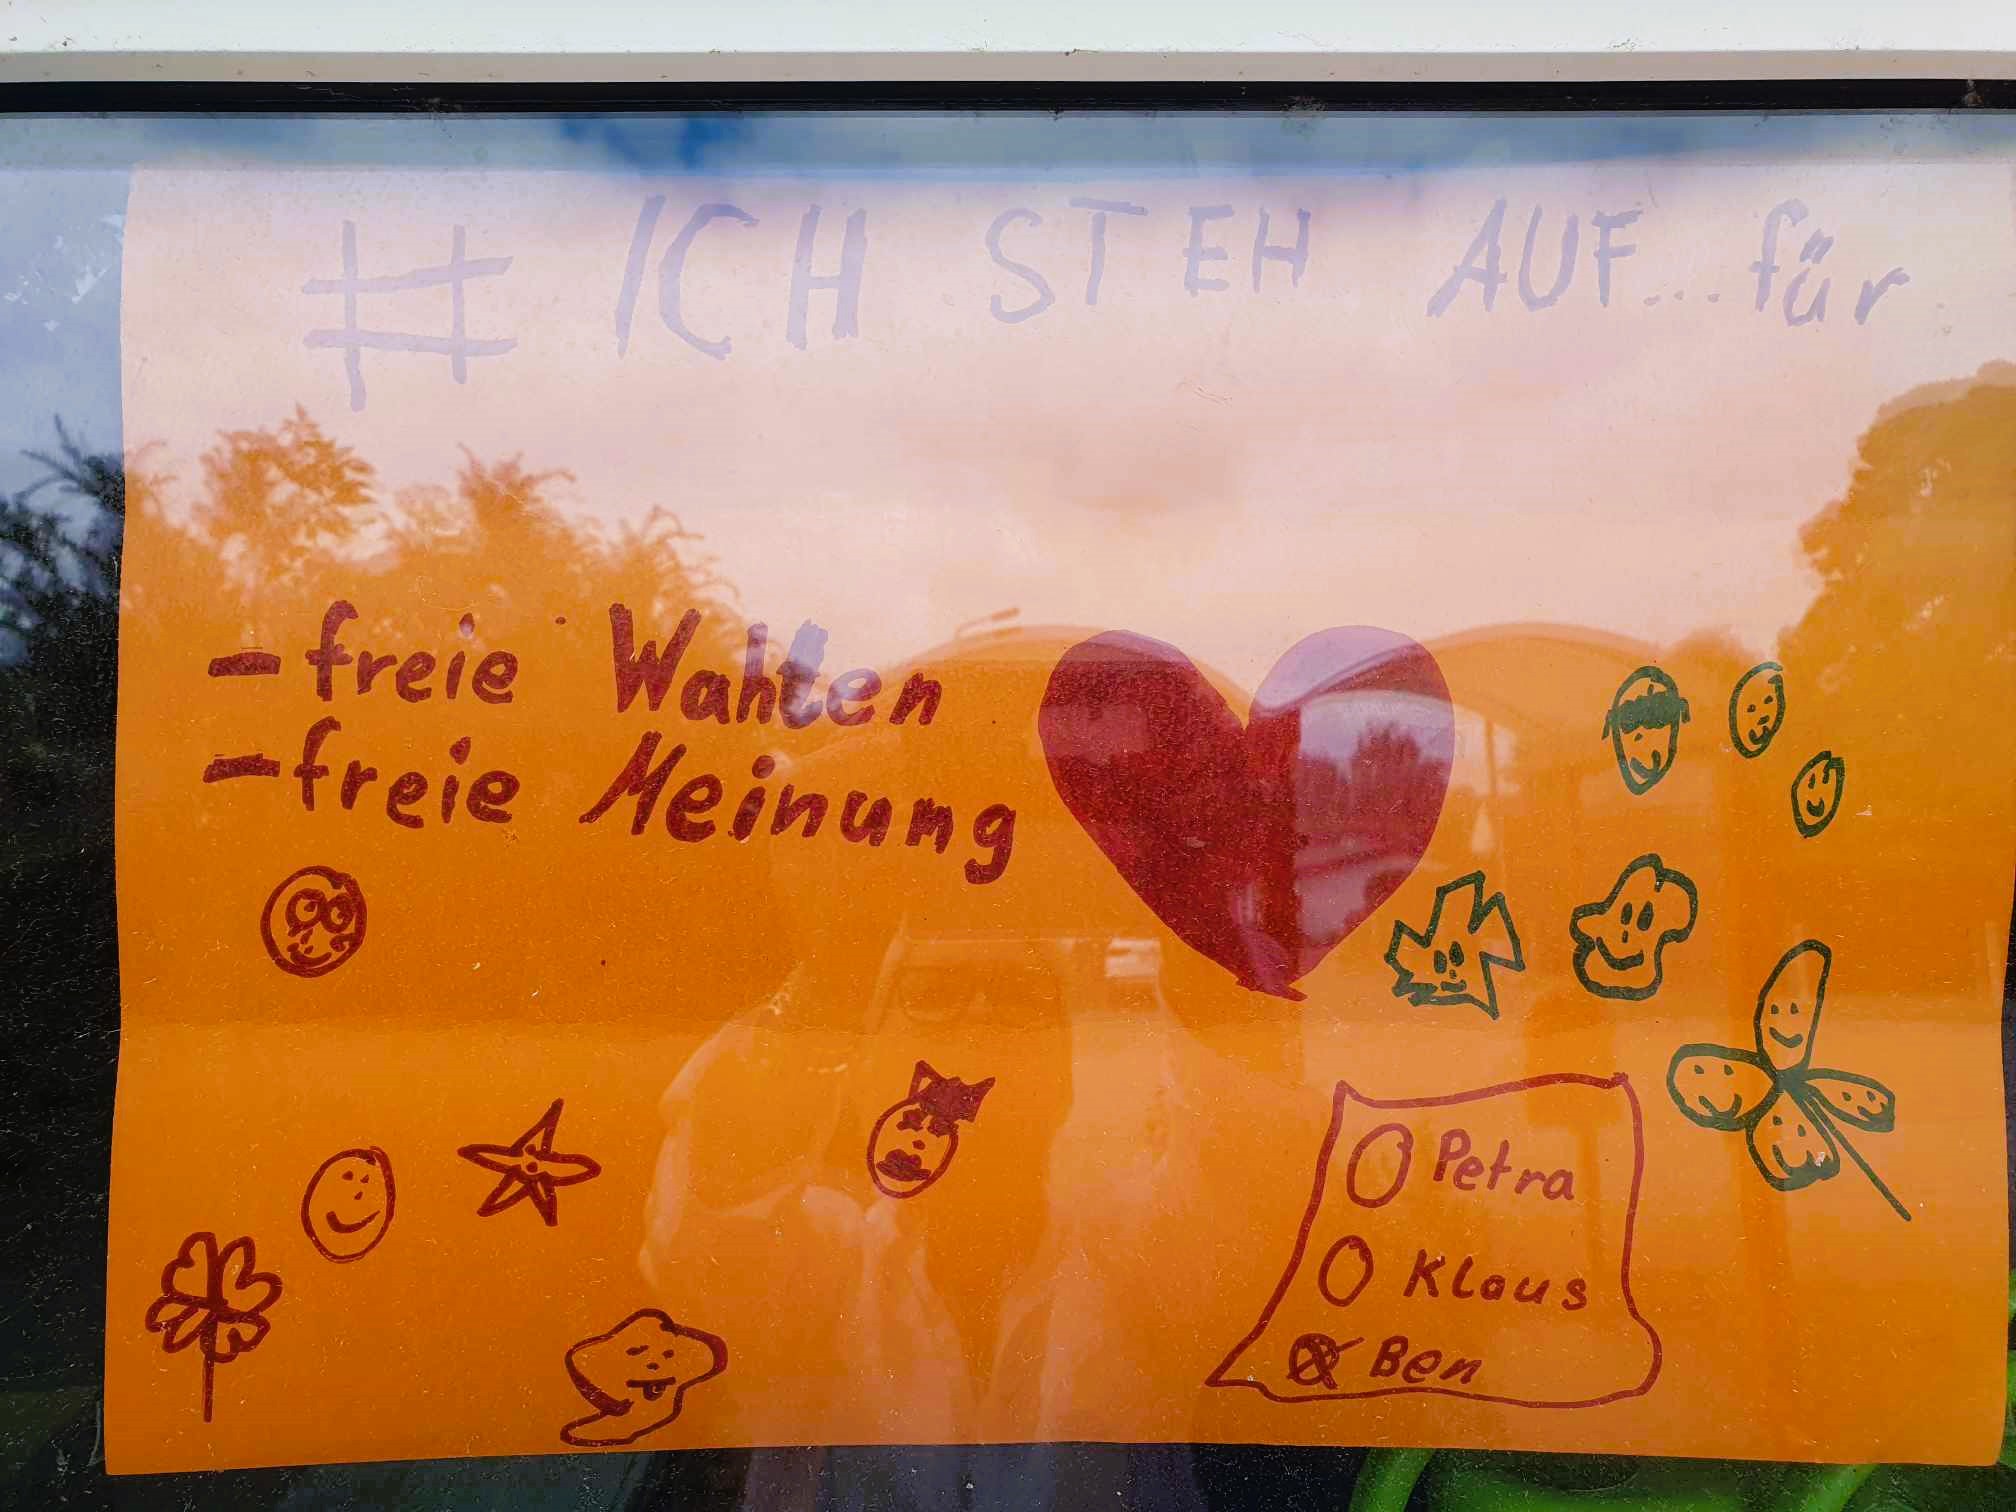 # ICH STEH AUF... für
- freie Wahlen
- freie Meinung
Petra
Klaus
Ben